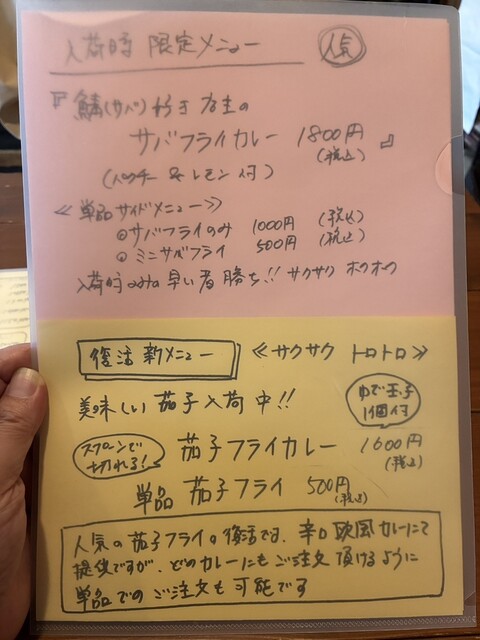 入荷時 限定メニュー 人気
『鯖(サバ)好き店主の
サバフライカレー 1800円 (税込)』
(パクチー & レモン付)
≪単品サイドメニュー≫
◎サバフライのみ 1000円 (税込)
◎ミニサバフライ 500円 (税込)
入荷時のみの早い者勝ち!! サクサク ホクホク
復活 新メニュー ≪サクサク トロトロ≫
美味しい 茄子入荷中!!
ゆで玉子
1個付
スプーンで
切れる!
茄子フライカレー 1600円 (税込)
単品 茄子フライ 500円 (税込)
人気の茄子フライの復活です、辛口欧風カレーにて
提供ですが、どのカレーにもご注文頂けるように
単品でのご注文も可能です